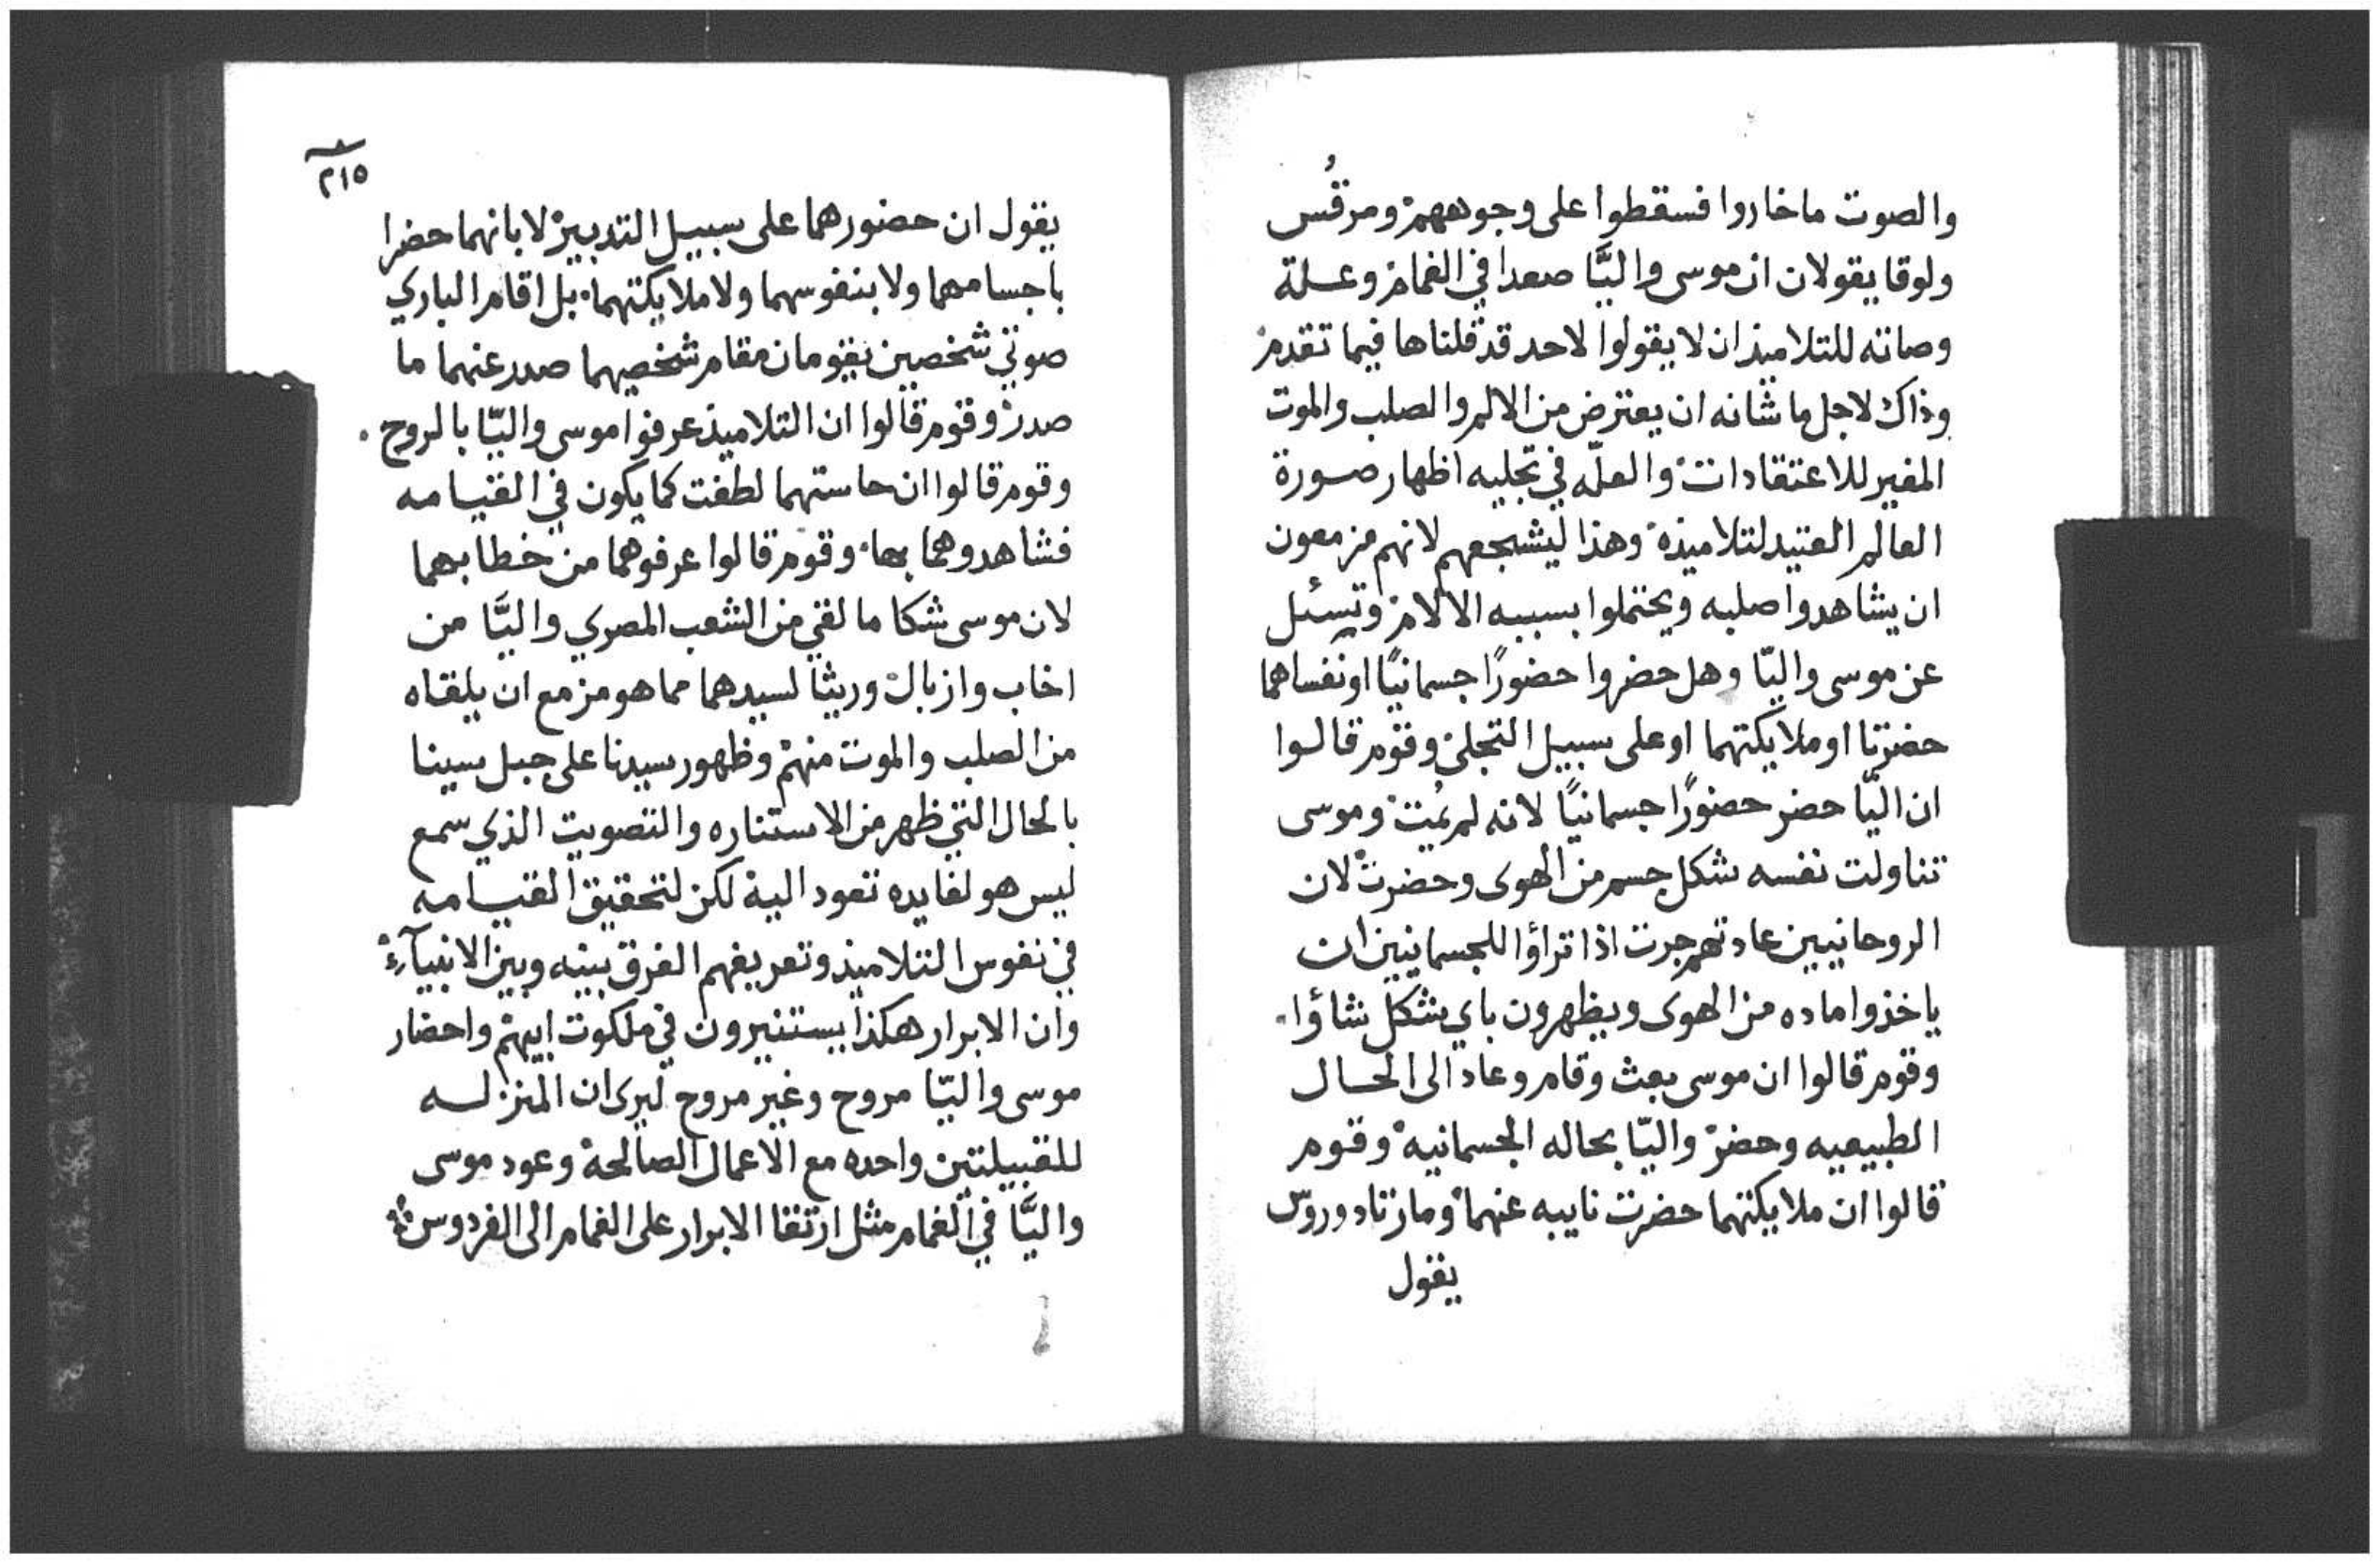 والصوت ماخاروا فسقطوا على وجوههم ومرقُس
ولوقا يقولان ان موسى واليَّا صعدا في الغمام وعلة
وصاته للتلاميذ ان لا يقولوا لاحد قد قلناها فيما تقدم
وذاك لاجل ما شانه ان يعترض من الالم والصلب والموت
المغير للاعتقادات والعلّه في تجليه اظهار صورة
العالم العتيد لتلاميذه وهذا ليشجعهم لانهم مزمعون
ان يشاهدوا صلبه ويحتملوا بسببه الالام وتسئل
عن موسى واليّا وهل حضروا حضورًا جسمانيًا او نفساهما
حضرتا او ملايكتهما او على سبيل التجلي وقوم قالوا
ان اليّا حضر حضورًا جسمانيًا لانه لم يمُت وموسى
تناولت نفسه شكل جسم من الهوى وحضرت لان
الروحانيين عادتهم جرت اذا تراؤا للجسمانيين ان
ياخذوا ماده من الهوى ويظهرون باي شكل شاؤا.
وقوم قالوا ان موسى بعث وقام وعاد الى الحال
الطبيعيه وحضر واليّا بحاله الجسمانيه وقوم
قالوا ان ملايكتهما حضرت نايبه عنهما ومارتادوروس
يقول
٢١٥
يقول ان حضورهما على سبيل التدبير لا بانهما حضرا
باجسامهما ولا بنفوسهما ولا ملايكتهما بل اقام الباري
صوتي شخصين يقومان مقام شخصيهما صدر عنهما ما
صدر وقوم قالوا ان التلاميذ عرفوا موسى واليّا بالروح.
وقوم قالوا ان حاستهما لطفت كما يكون في القيامه
فشاهدوهما بها. وقوم قالوا عرفوهما من خطابهما
لان موسى شكا ما لقي من الشعب المصري واليَّا من
اخاب وازبال وريثا لسيدهما مما هو مزمع ان يلقاه
من الصلب والموت منهم وظهور سيدنا على جبل سينا
بالحال التي ظهر من الاستناره والتصويت الذي سمع
ليس هو لفايده تعود اليه لكن لتحقيق القيامه
في نفوس التلاميذ وتعريفهم الفرق بينه وبين الانبيآء
وان الابرار هكذا يستنيرون في ملكوت ابيهم واحضار
موسى واليّا مروح وغير مروح ليرى ان المنزله
للقبيلتين واحده مع الاعمال الصالحة وعود موسى
واليَّا في الغمام مثل ارتقا الابرار على الغمام الى الفردوس